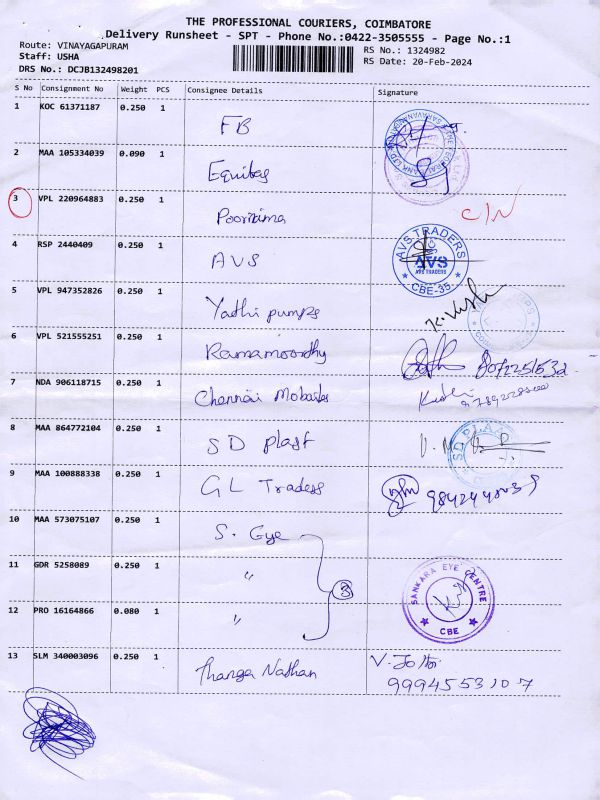 THE PROFESSIONAL COURIERS, COIMBATORE
Delivery Runsheet - SPT - Phone No.:0422-3505555 - Page No.:1
Route: VINAYAGAPURAM
Staff: USHA
DRS No.: DCJB132498201
RS No.: 1324982
RS Date: 20-Feb-2024
S No Consignment No Weight PCS Consignee Details Signature
1 KOC 61371187 0.250 1 FB
2 MAA 105334039 0.090 1 Equitas
3 VPL 220964883 0.250 1 Poornima C/N
4 RSP 2440409 0.250 1 AVS AVS TRADERS AVS AVS TRADERS CBE-35
5 VPL 947352826 0.250 1 Yadhi pumps
6 VPL 521555251 0.250 1 Ramamoorthy
7 NDA 906118715 0.250 1 Chennai Mobiles
8 MAA 864772104 0.250 1 SD plast
9 MAA 100888338 0.250 1 GL Traders
10 MAA 573075107 0.250 1 S. Eye
11 GDR 5258089 0.250 1 " 3 SANKARA EYE CENTRE CBE
12 PRO 16164866 0.080 1 "
13 SLM 340003096 0.250 1 Thanga Nathan
9994553107